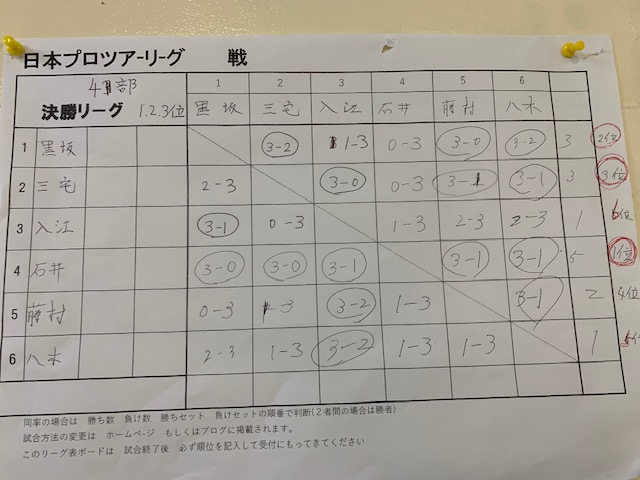 日本プロツアーリーグ 戦
4部 1 2 3 4 5 6
決勝リーグ 1.2.3位 黒坂 三宅 入江 石井 藤村 八木
1 黒坂 3-2 1-3 0-3 3-0 3-2 3 2位
2 三宅 2-3 3-0 0-3 3-1 3-1 3 3位
3 入江 3-1 0-3 1-3 2-3 2-3 1 6位
4 石井 3-0 3-0 3-1 3-1 3-1 5 1位
5 藤村 0-3 1-3 3-2 1-3 3-1 2 4位
6 八木 2-3 1-3 3-2 1-3 1-3 1
同率の場合は 勝ち数 負け数 勝ちセット 負けセットの順番で判断(2者間の場合は勝者)
試合方法の変更は ホームページ もしくはブログに掲載されます。
このリーグ表ボードは 試合終了後 必ず順位を記入して受付にもってきてください